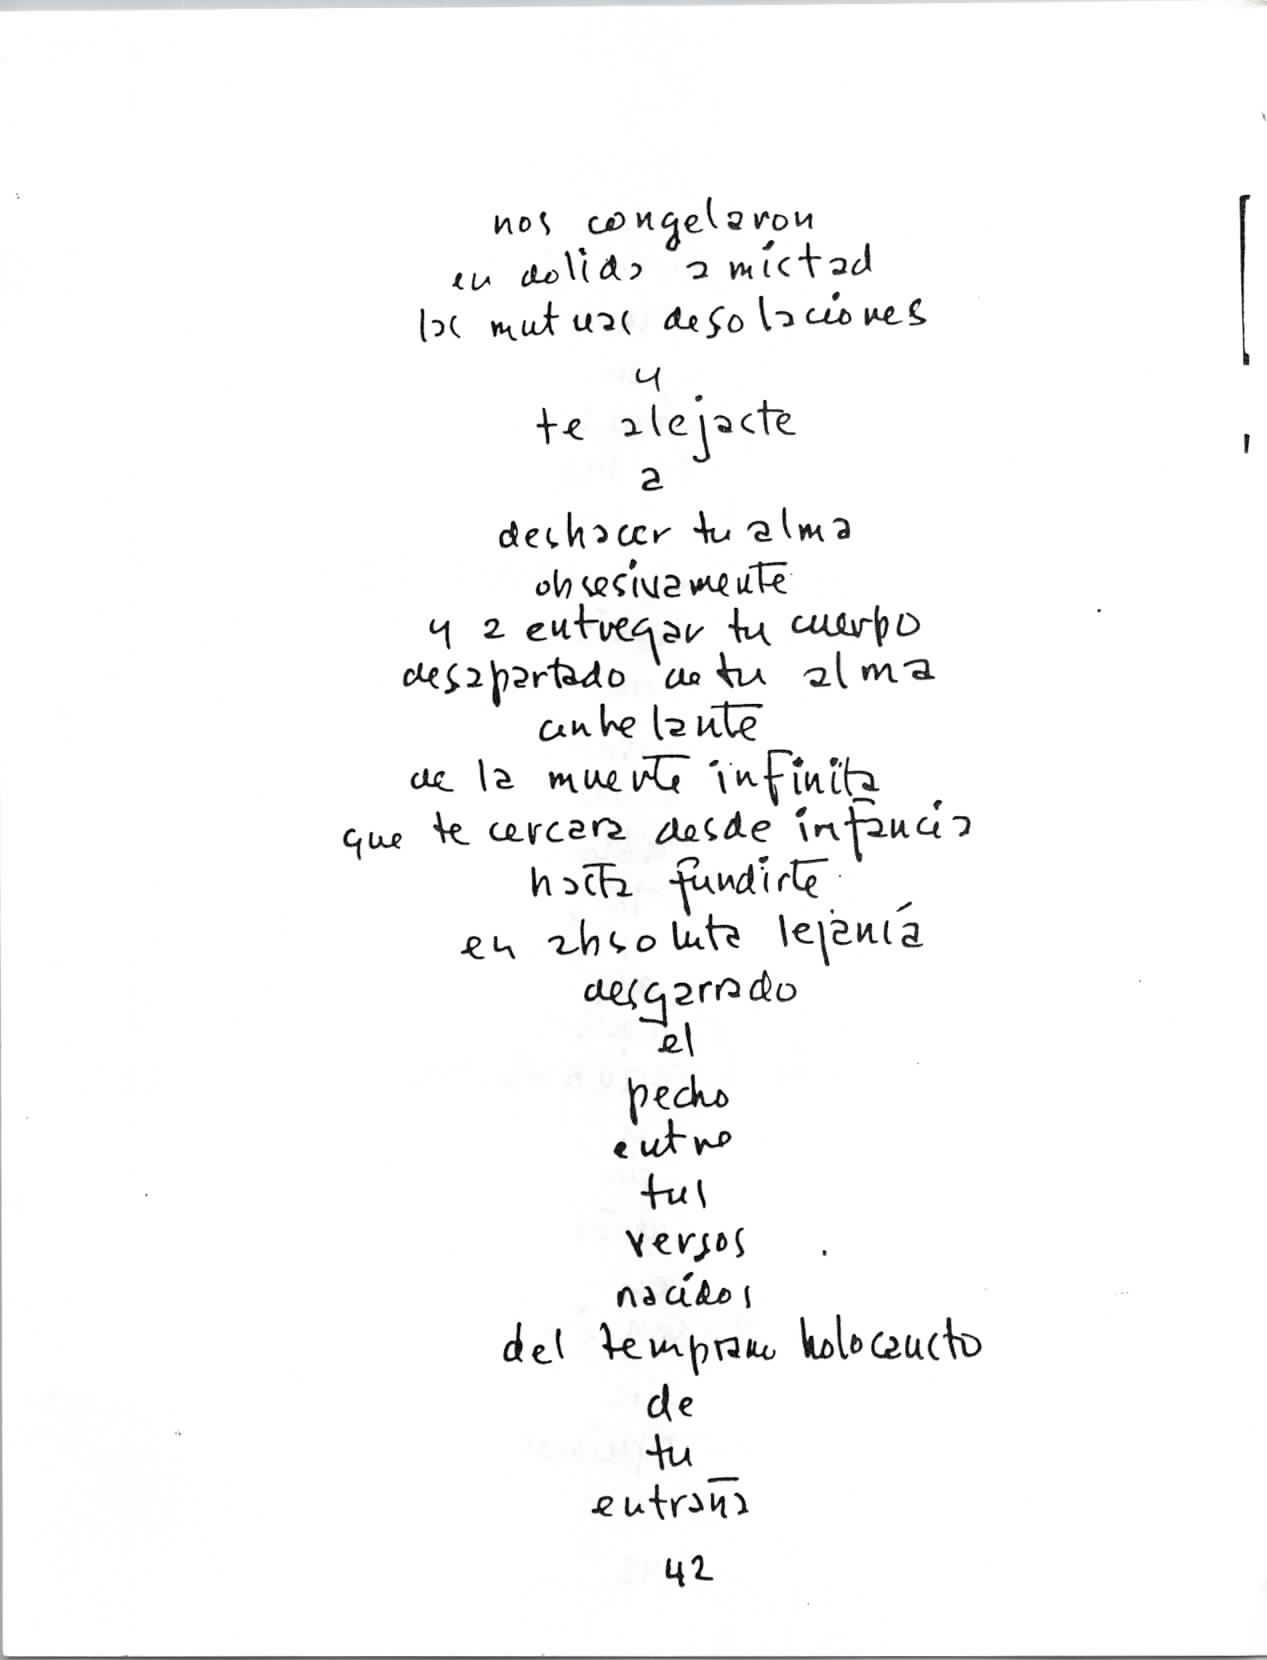 nos congelaron
en dolida amistad
las mutuas desolaciones
y
te alejaste
a
deshacer tu alma
obsesivamente
y a entregar tu cuerpo
desapartado de tu alma
anhelante
de la muerte infinita
que te cercara desde infancia
hasta fundirte
en absoluta lejanía
desgarrado
el
pecho
entre
tus
versos
nacidos
del temprano holocausto
de
tu
entraña
42